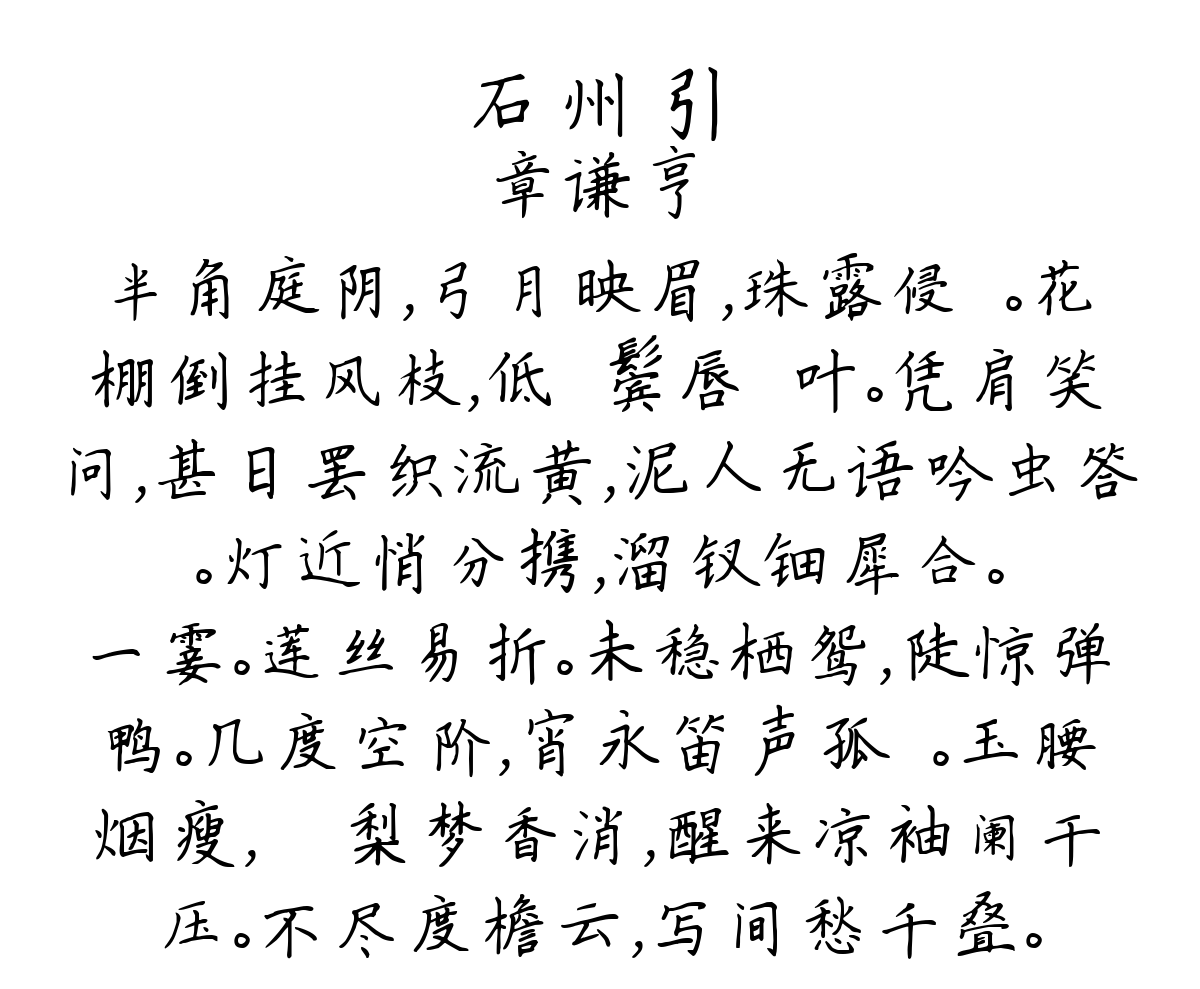 石州引
章谦亨
半角庭阴,弓月映眉,珠露侵 。花
棚倒挂风枝,低 鬓唇 叶。凭肩笑
问,甚日罢织流黄,泥人无语吟虫答
。灯近悄分携,溜钗钿犀合。
一霎。莲丝易折。未稳栖鸳,陡惊弹
鸭。几度空阶,宵永笛声孤 。玉腰
烟瘦, 梨梦香消,醒来凉袖阑干
压。不尽度檐云,写间愁千叠。